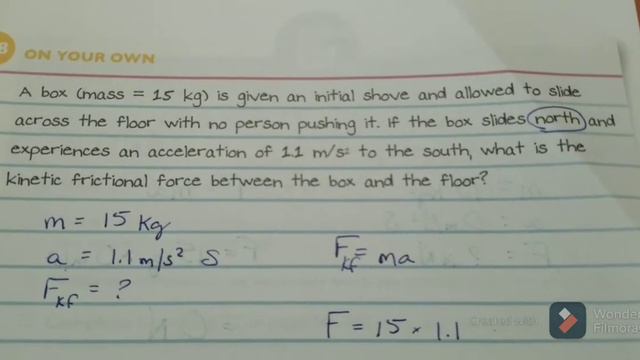 8 ON YOUR OWN
A box (mass = 15 kg) is given an initial shove and allowed to slide
across the floor with no person pushing it. If the box slides north and
experiences an acceleration of 1.1 m/s² to the south, what is the
kinetic frictional force between the box and the floor?
m = 15 kg
a = 1.1 m/s² S
F_kf = ?
F_kf = ma
F = 15 × 1.1
Created with
Wonder
Filmora